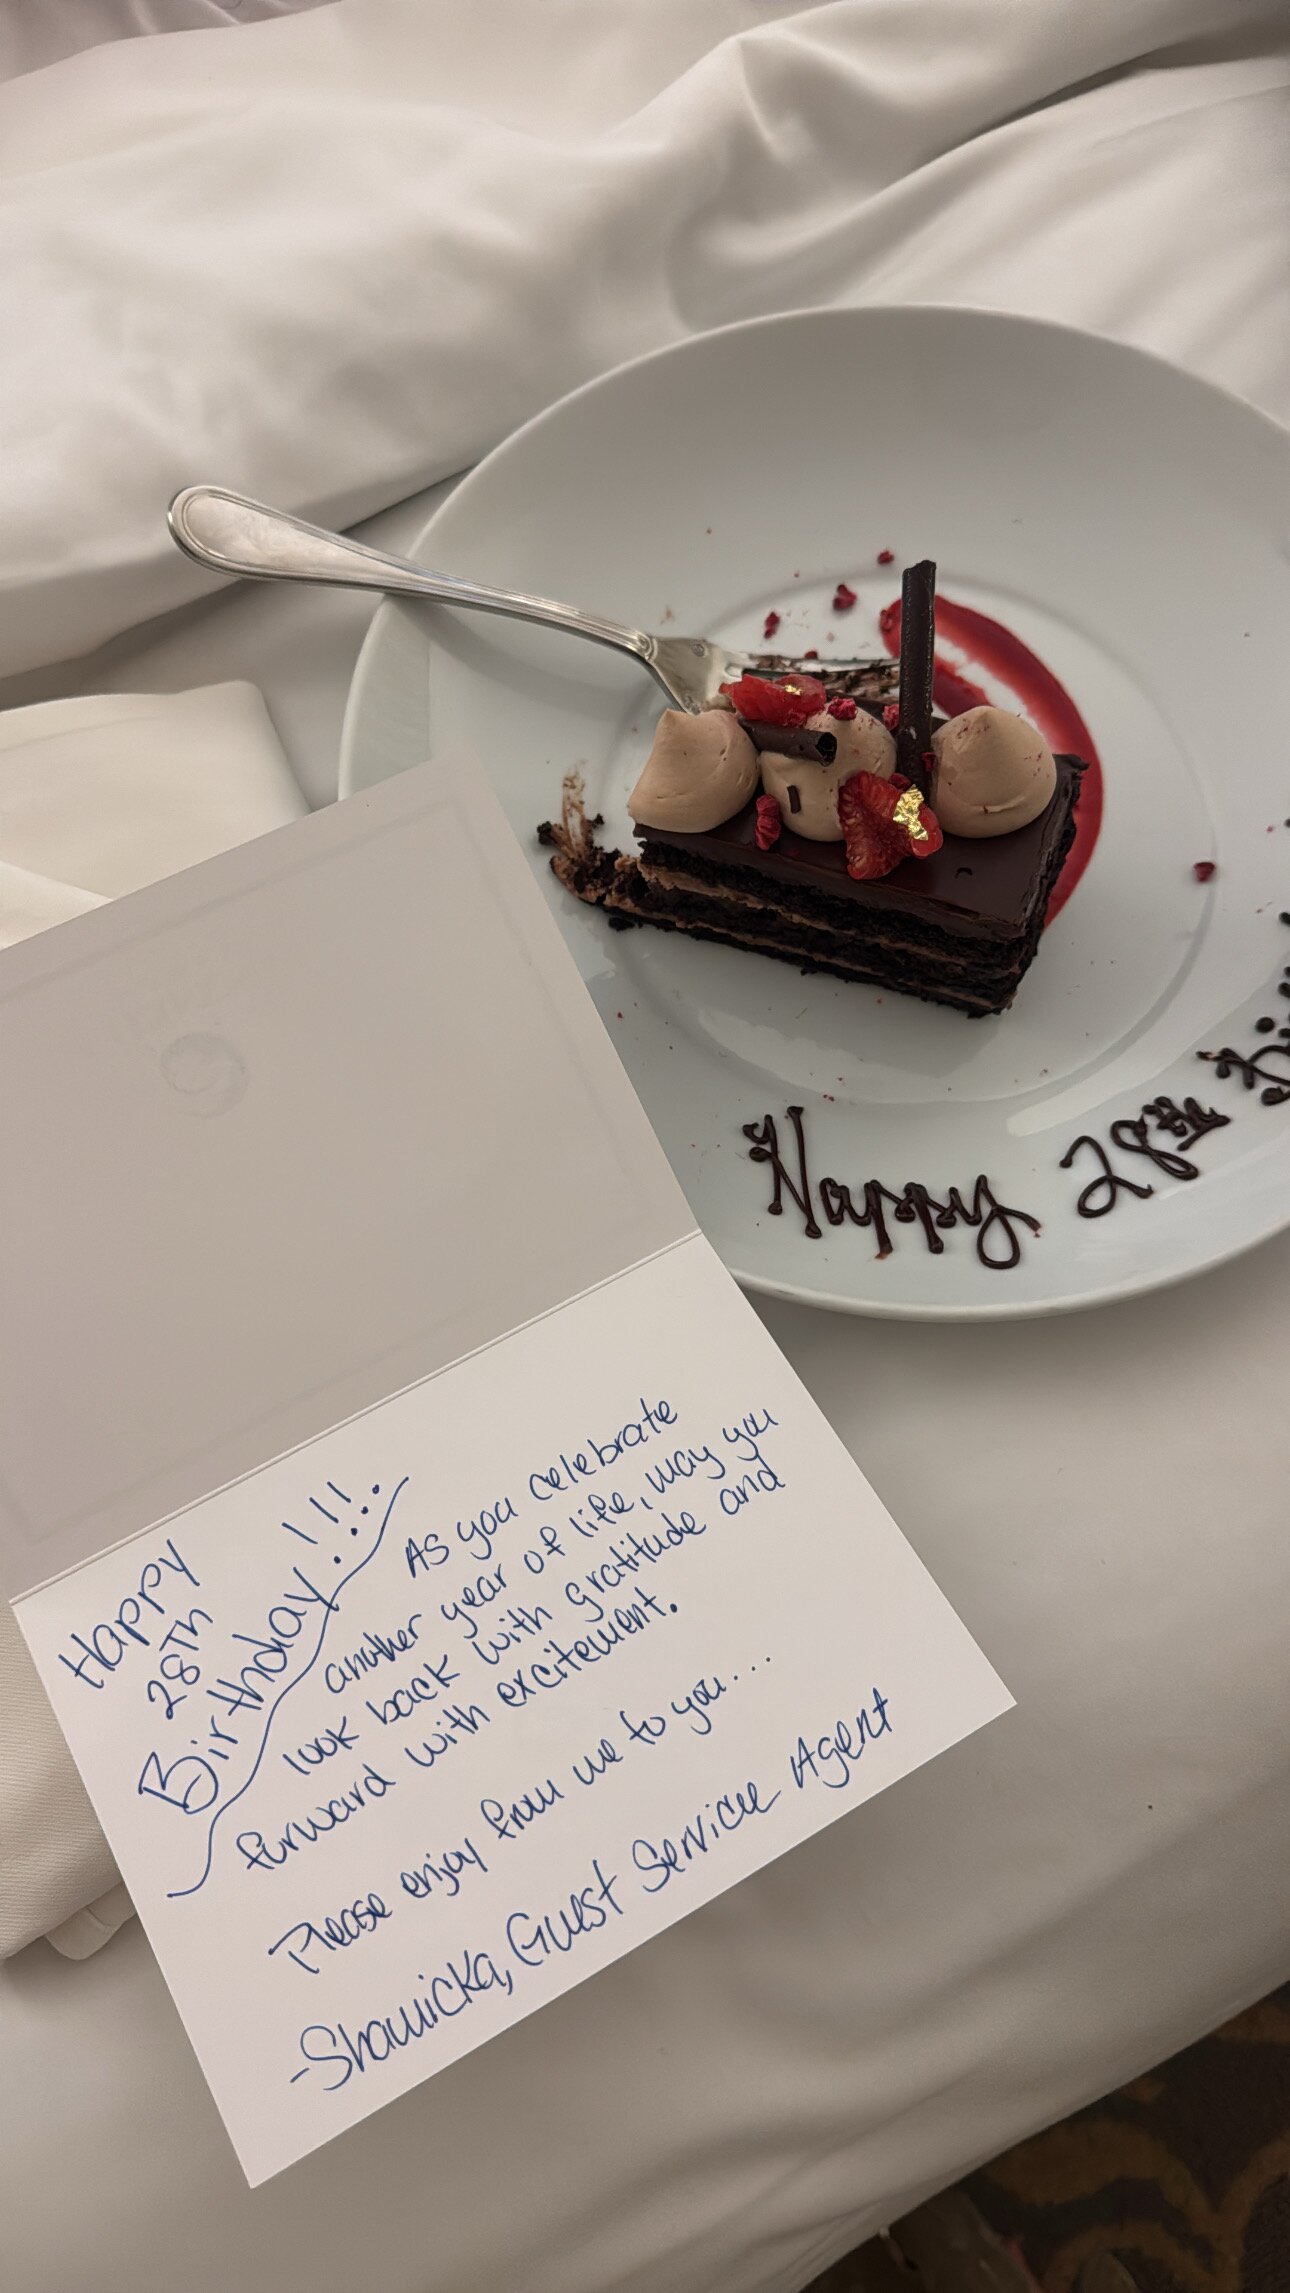 Happy 28th
Happy
28TH
Birthday!!!
As you celebrate
another year of life, may you
look back with gratitude and
forward with excitement.
Please enjoy from me to you...
-Shamicka, Guest Service Agent